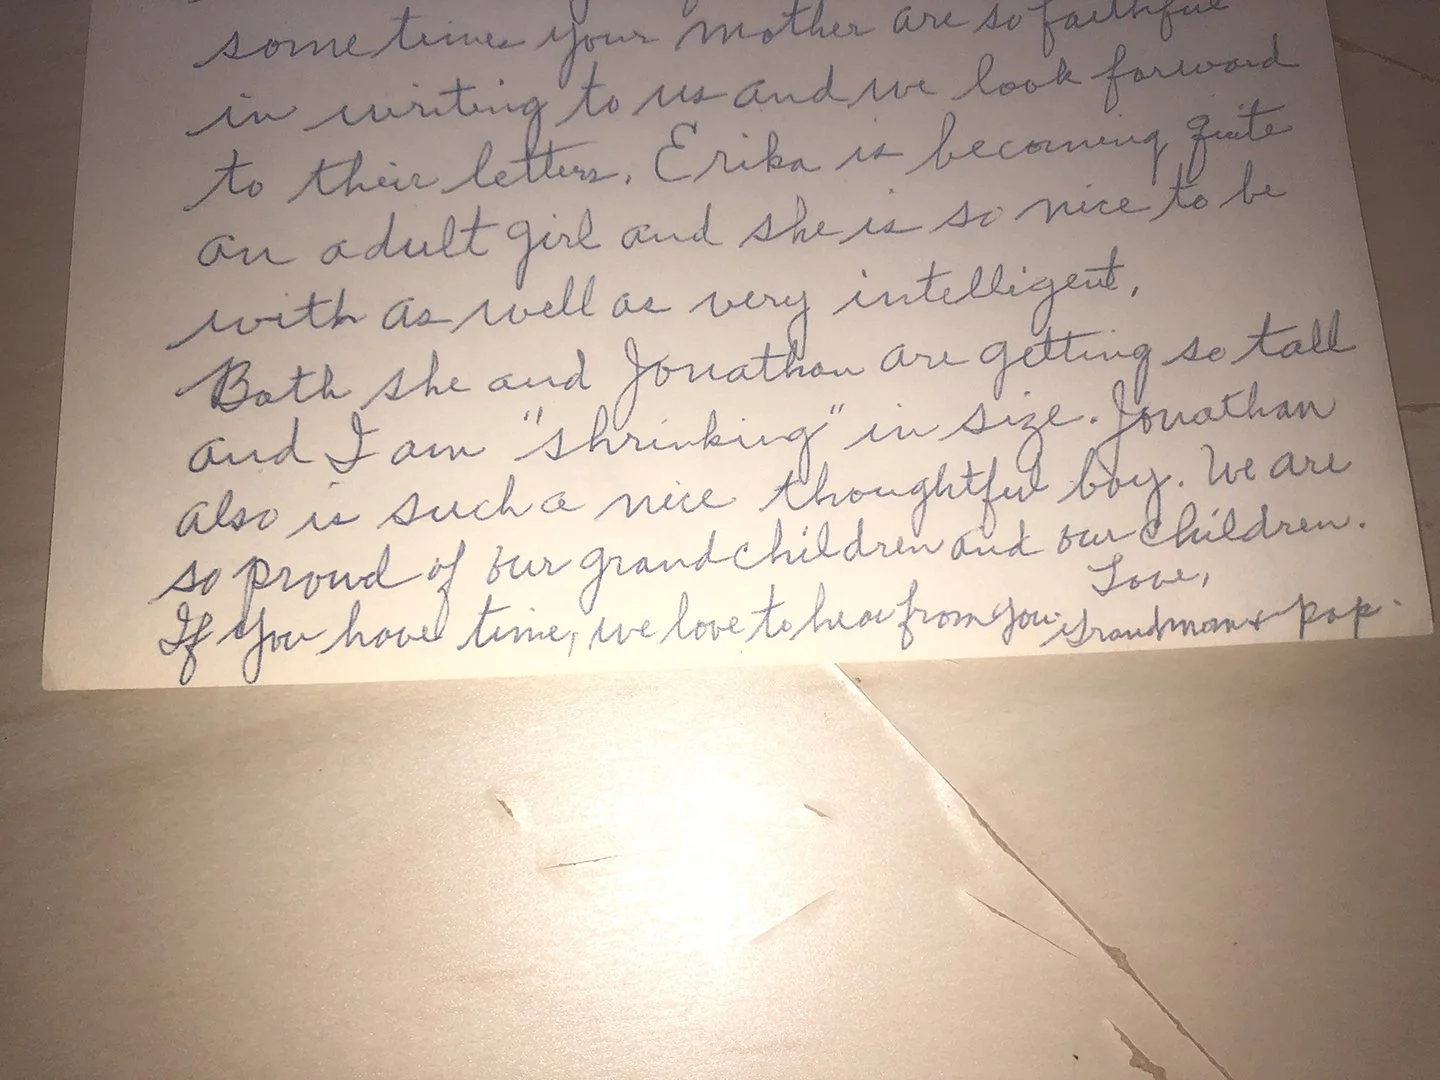 sometimes your mother are so faithful
in writing to us and we look forward
to their letters. Erika is becoming quite
an adult girl and she is so nice to be
with as well as very intelligent.
Both she and Jonathan are getting so tall
and I am "shrinking" in size. Jonathan
also is such a nice thoughtful boy. We are
so proud of our grandchildren and our children.
If you have time, we love to hear from you.
Love,
Grandmom & Pop.